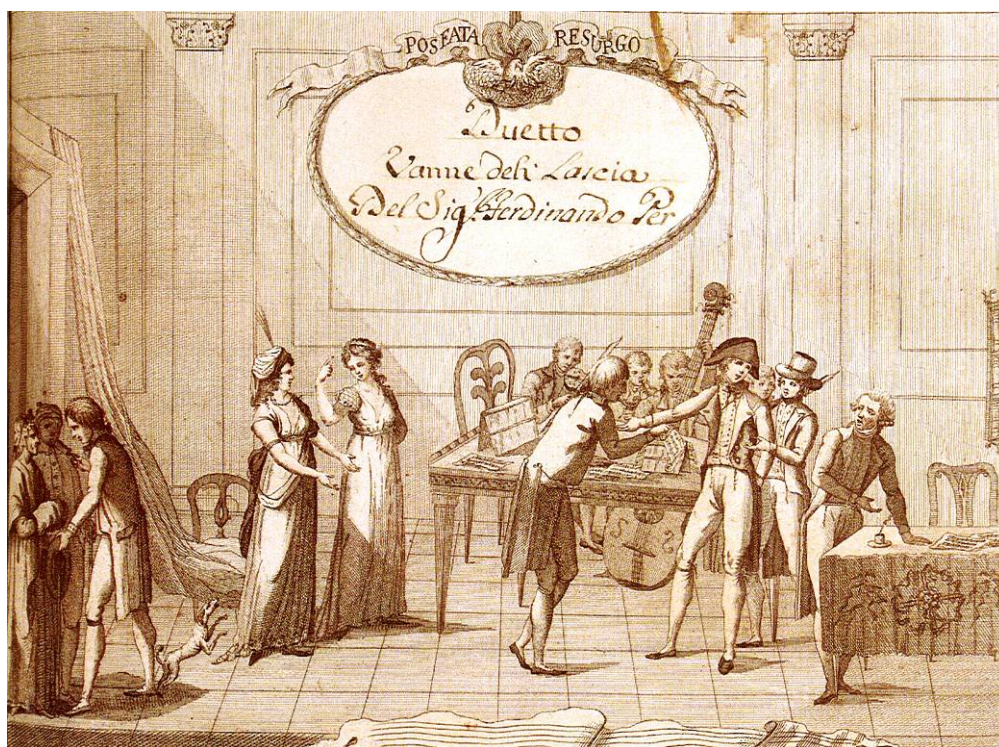 POST FATA RESURGO
Duetto
Vanne deh Lascia
Del Sig.r Ferdinando Per